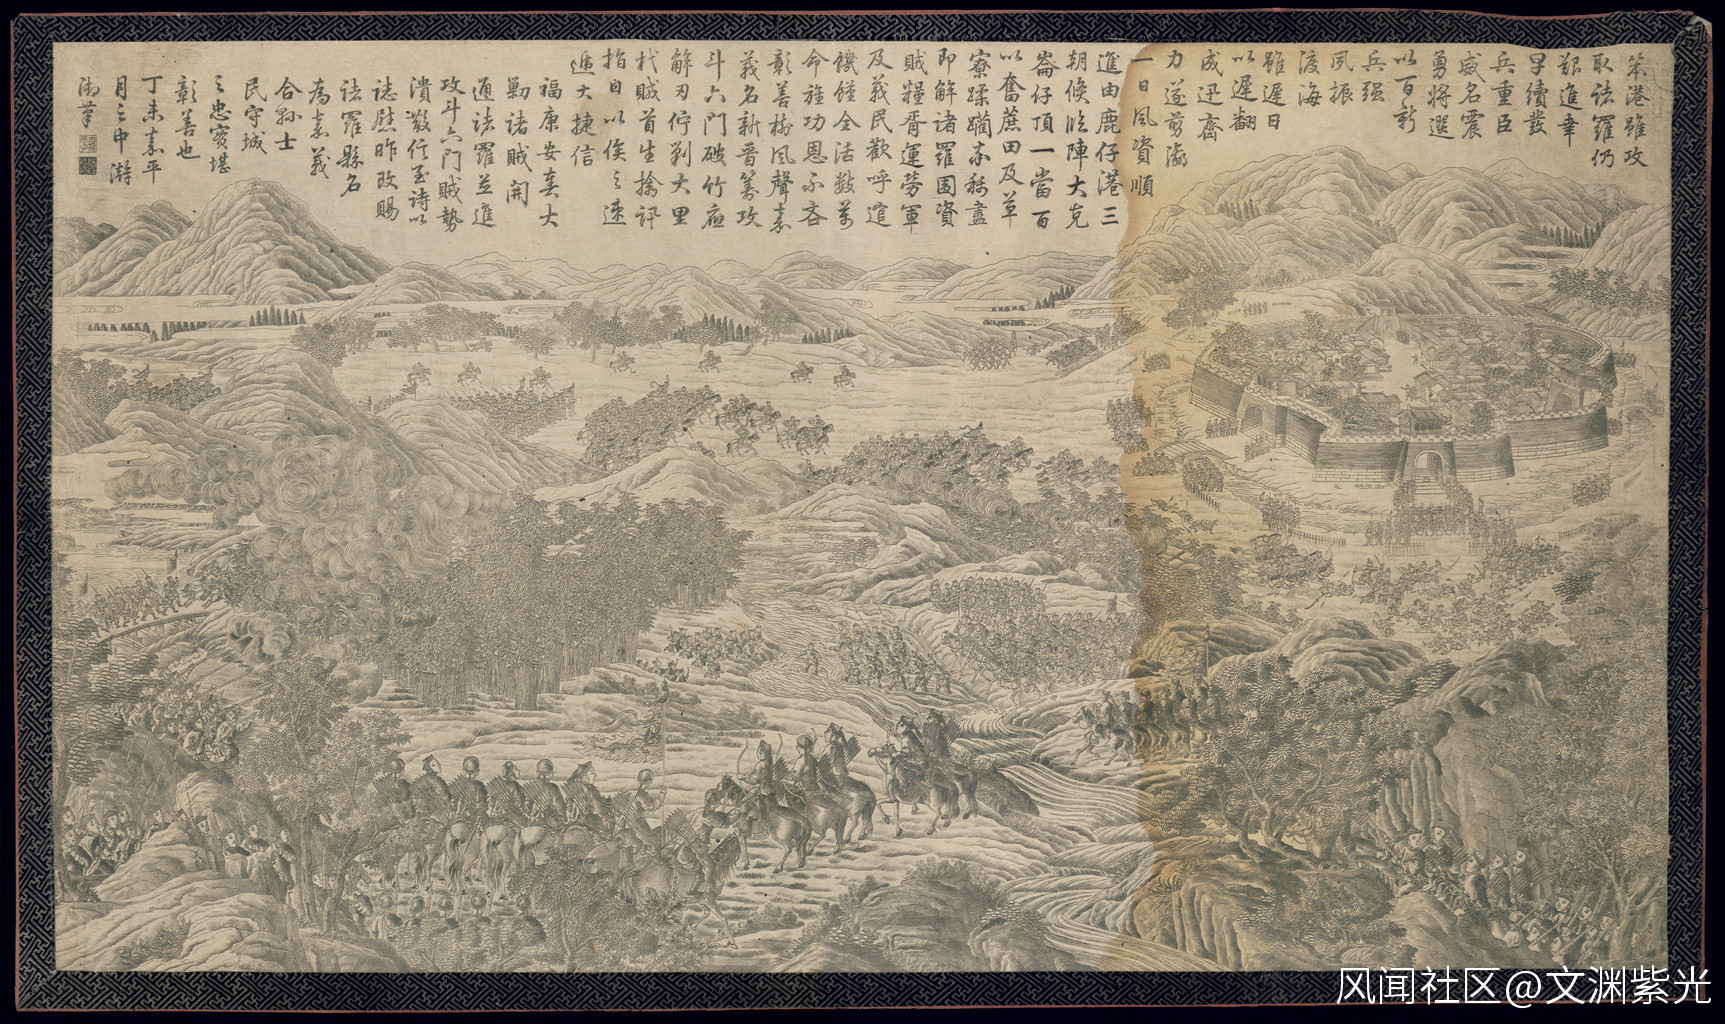 笨港雖攻
取諸羅仍
艱進幸
早續發
兵重臣
威名震
勇將選
以百新
兵强
風振
渡海
雖遲日
以遲翻
成迅齊
力遂剪
一日風資順
進由鹿仔港三
朝候臨陣大克
崙仔頂一當百
以奮蔗田及草
寮蹂躪亦種盡
即解諸羅圍資
賊糧胥運勞軍
及義民歡呼道
饑饉全活數萬
命旌功恩不吝
彰善樹風聲嘉
義名新晉籌攻
斗六門破竹應
解刃佇剿大里
杙賊首生擒訊
指日以俟之速
進大捷信
福康安奏大
勦諸賊開
通諸羅並進
攻斗六門賊勢
潰散信至詩以
誌慰昨改賜
諸羅縣名
為嘉義
合縣士
民守城
之忠實堪
彰善也
丁未嘉平
月之中澣
御筆
風闻社区@文渊紫光